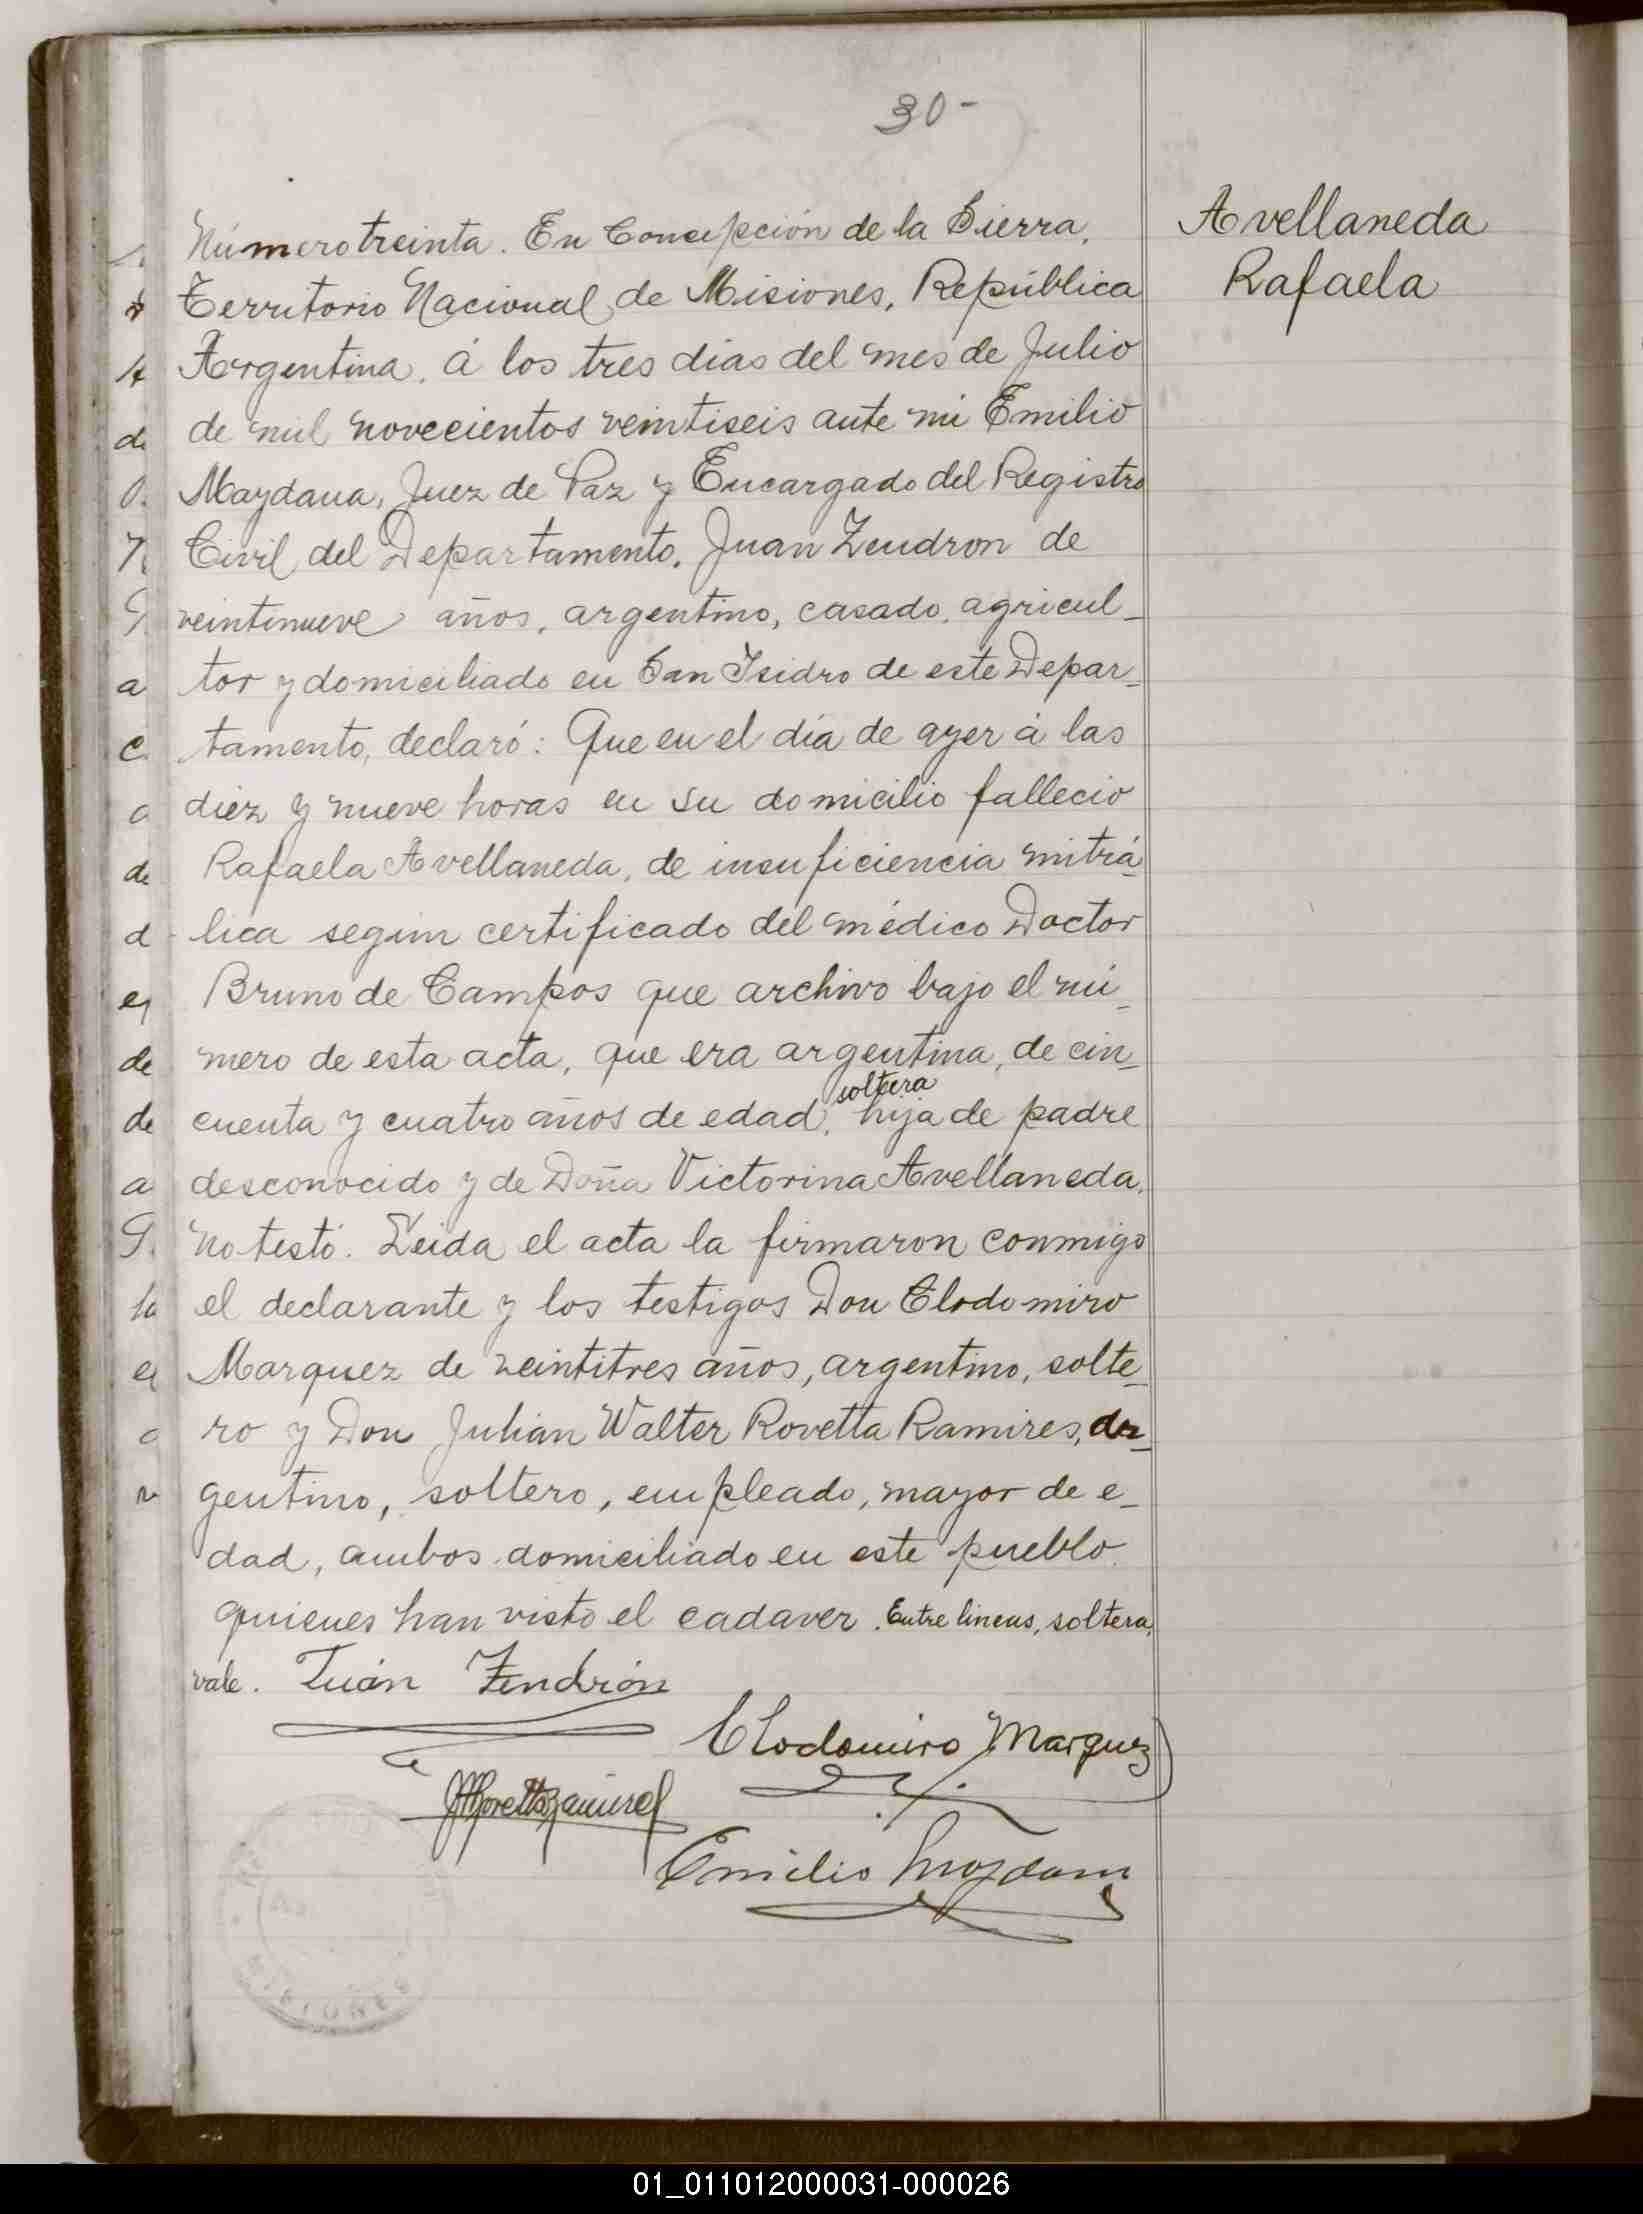 30-
Avellaneda
Rafaela
Número treinta. En Concepción de la Sierra,
Territorio Nacional de Misiones, República
Argentina, á los tres dias del mes de Julio
de mil novecientos veintiseis ante mi Emilio
Maydana, Juez de Paz y Encargado del Registro
Civil del Departamento, Juan Zendron de
veintinueve años, argentino, casado, agricul-
tor y domiciliado en San Isidro de este Depar-
tamento, declaró: Que en el día de ayer á las
diez y nueve horas en su domicilio fallecio
Rafaela Avellaneda, de insuficiencia mitrá-
lica segun certificado del médico Doctor
Bruno de Campos que archivo bajo el nú-
mero de esta acta, que era argentina, de cin-
soltera
cuenta y cuatro años de edad, hija de padre
desconocido y de Doña Victorina Avellaneda.
No testó. Leida el acta la firmaron conmigo
el declarante y los testigos Don Clodomiro
Marquez de veintitres años, argentino, solte-
ro y Don Julian Walter Rovetta Ramires, ar-
gentino, soltero, empleado, mayor de e-
dad, ambos domiciliado en este pueblo
quienes han visto el cadaver. Entre lineas, soltera,
vale. Juán Zendrón
Clodomiro Marquez
Emilio Maydana
MISIONES
01_011012000031-000026